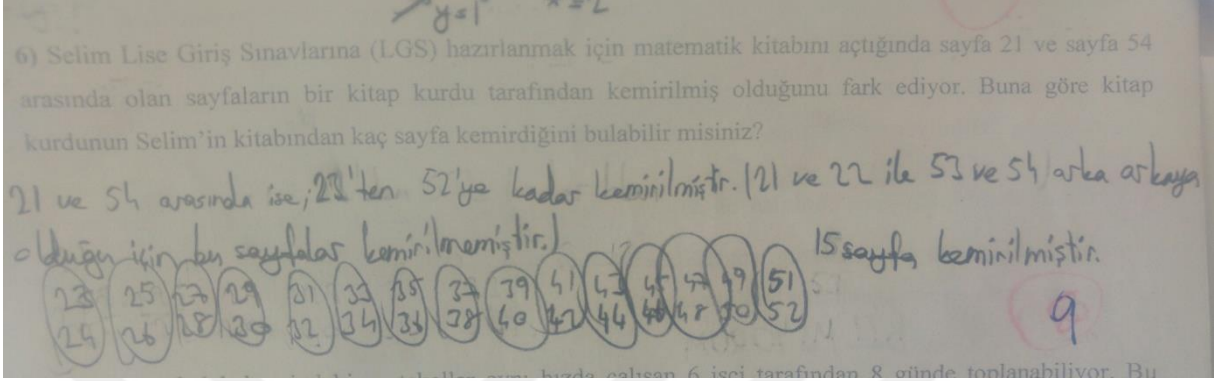 y=1
6) Selim Lise Giriş Sınavlarına (LGS) hazırlanmak için matematik kitabını açtığında sayfa 21 ve sayfa 54
arasında olan sayfaların bir kitap kurdu tarafından kemirilmiş olduğunu fark ediyor. Buna göre kitap
kurdunun Selim'in kitabından kaç sayfa kemirdiğini bulabilir misiniz?
21 ve 54 arasında ise; 23'ten 52'ye kadar kemirilmiştr. (21 ve 22 ile 53 ve 54 arka arkaya
olduğu için bu sayfalar kemirilmemiştir.) 15 sayfa kemirilmiştir.
23 25 27 29 31 33 35 37 39 41 43 45 47 49 51
24 26 28 30 32 34 36 38 40 42 44 46 48 50 52
9
hızda çalışan 6 işçi tarafından 8 günde toplanabiliyor. Bu